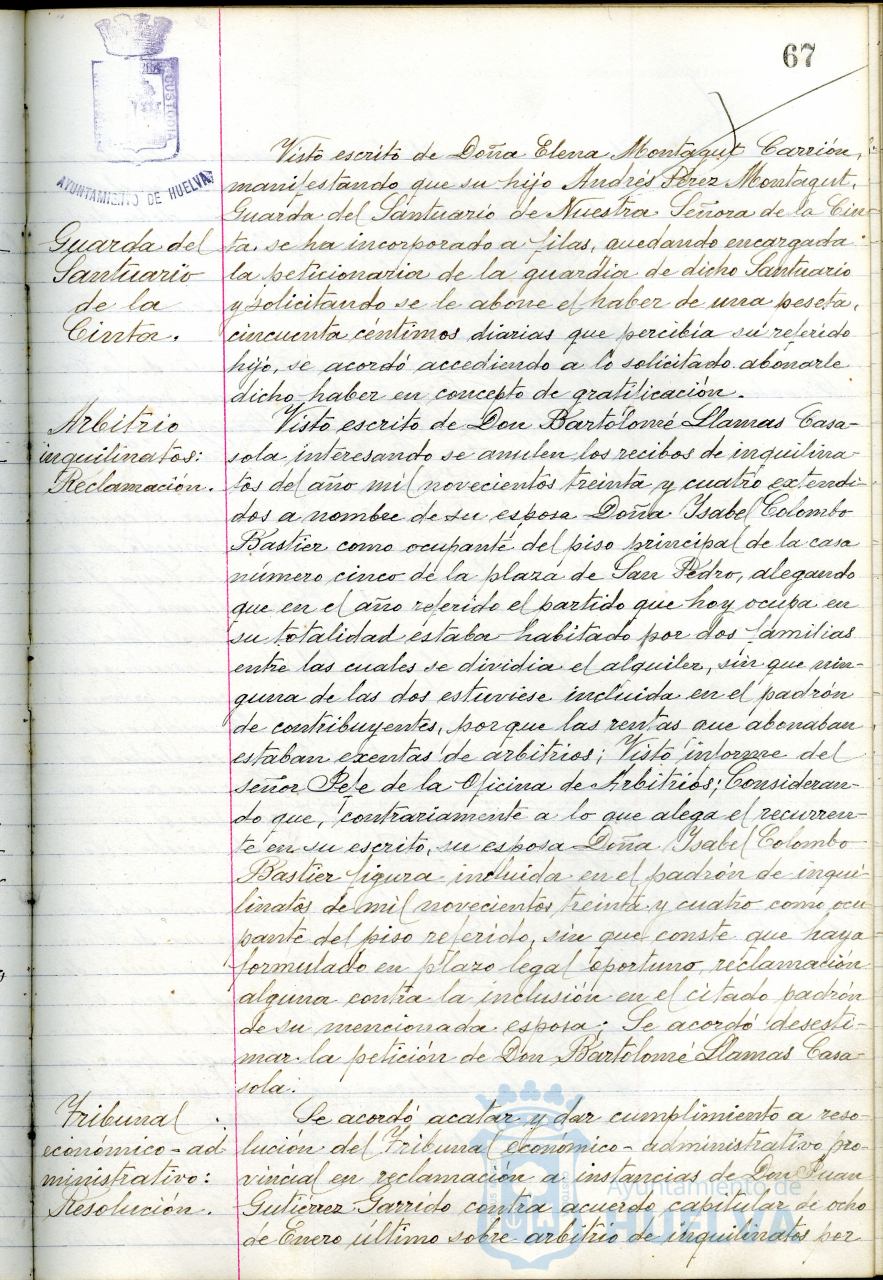 67
AYUNTAMIENTO DE HUELVA
Visto escrito de Doña Elena Montagut Carrión,
manifestando que su hijo Andrés Pérez Montagut,
Guarda del Santuario de Nuestra Señora de la Cin-
Guarda del
ta, se ha incorporado a filas, quedando encargada
Santuario
la peticionaria de la guardia de dicho Santuario
de la
y solicitando se le abone el haber de una peseta,
Cinta.
cincuenta céntimos diarias que percibía su referido
hijo, se acordó accediendo a lo solicitado abonarle
dicho haber en concepto de gratificación.
Arbitrio
inquilinatos:
Reclamación.
Visto escrito de Don Bartólomé Llamas Casa-
sola interesando se anulen los recibos de inquilina-
tos del año mil novecientos treinta y cuatro extendi-
dos a nombre de su esposa Doña Isabel Colombo
Bastier como ocupante del piso principal de la casa
número cinco de la plaza de San Pedro, alegando
que en el año referido el partido que hoy ocupa en
su totalidad estaba habitado por dos familias
entre las cuales se dividia el alquiler, sin que nin-
guna de las dos estuviese incluida en el padrón
de contribuyentes, porque las rentas que abonaban
estaban exentas de arbitrios; Visto informe del
señor Jefe de la Oficina de Arbitrios; Consideran-
do que, contrariamente a lo que alega el recurren-
te en su escrito, su esposa Doña Isabel Colombo
Bastier figura incluida en el padrón de inqui-
linatos de mil novecientos treinta y cuatro como ocu
pante del piso referido, sin que conste que haya
formulado en plazo legal oportuno, reclamación
alguna contra la inclusión en el citado padrón
de su mencionada esposa; Se acordó desesti-
mar la petición de Don Bartolomé Llamas Casa-
sola.
Tribunal
económico-ad
ministrativo:
Resolución.
Se acordó acatar y dar cumplimiento a reso-
lución del Tribunal económico-administrativo pro-
vincial en reclamación a instancias de Don Juan
Gutiérrez Garrido contra acuerdo capitular de ocho
de Enero último sobre arbitrio de inquilinatos por
Ayuntamiento de
HUELVA